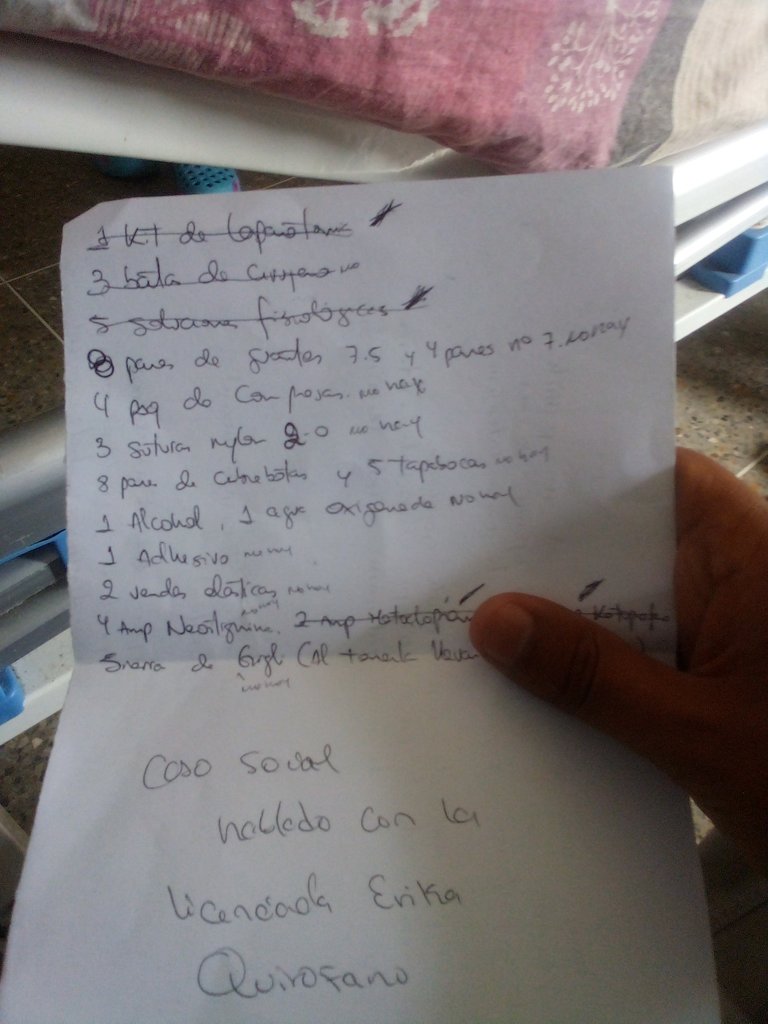 1 Kit de Laparotomia
3 bata de Cirujano no
5 Soluciones fisiologicas
8 pares de guantes 7.5 y 4 pares no 7. no hay
4 paq de Compresas. no hay
3 Suturas nylon 2-0 no hay
8 pares de Cubrebotas y 5 tapabocas no hay
1 Alcohol, 1 agua oxigenada no hay
1 Adhesivo no hay
2 vendas elásticas no hay
4 Amp Neostigmina. no hay 2 Amp
5 de (Al
no hay
Caso Social
hablado con la
Licenciada Erika
Quirofano